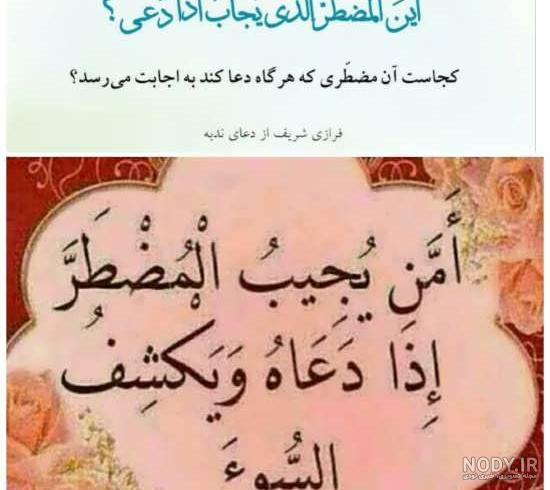 أَيْنَ الْمُضْطَرُّ الَّذِی یُجَابُ إِذَا دَعَی؟
کجاست آن مضطّری که هرگاه دعا کند به اجابت می‌رسد؟
فرازی شریف از دعای ندبه
أَمَّن يُجِيبُ الْمُضْطَرَّ
إِذَا دَعَاهُ وَيَكْشِفُ
السُّوءَ
NODY.IR